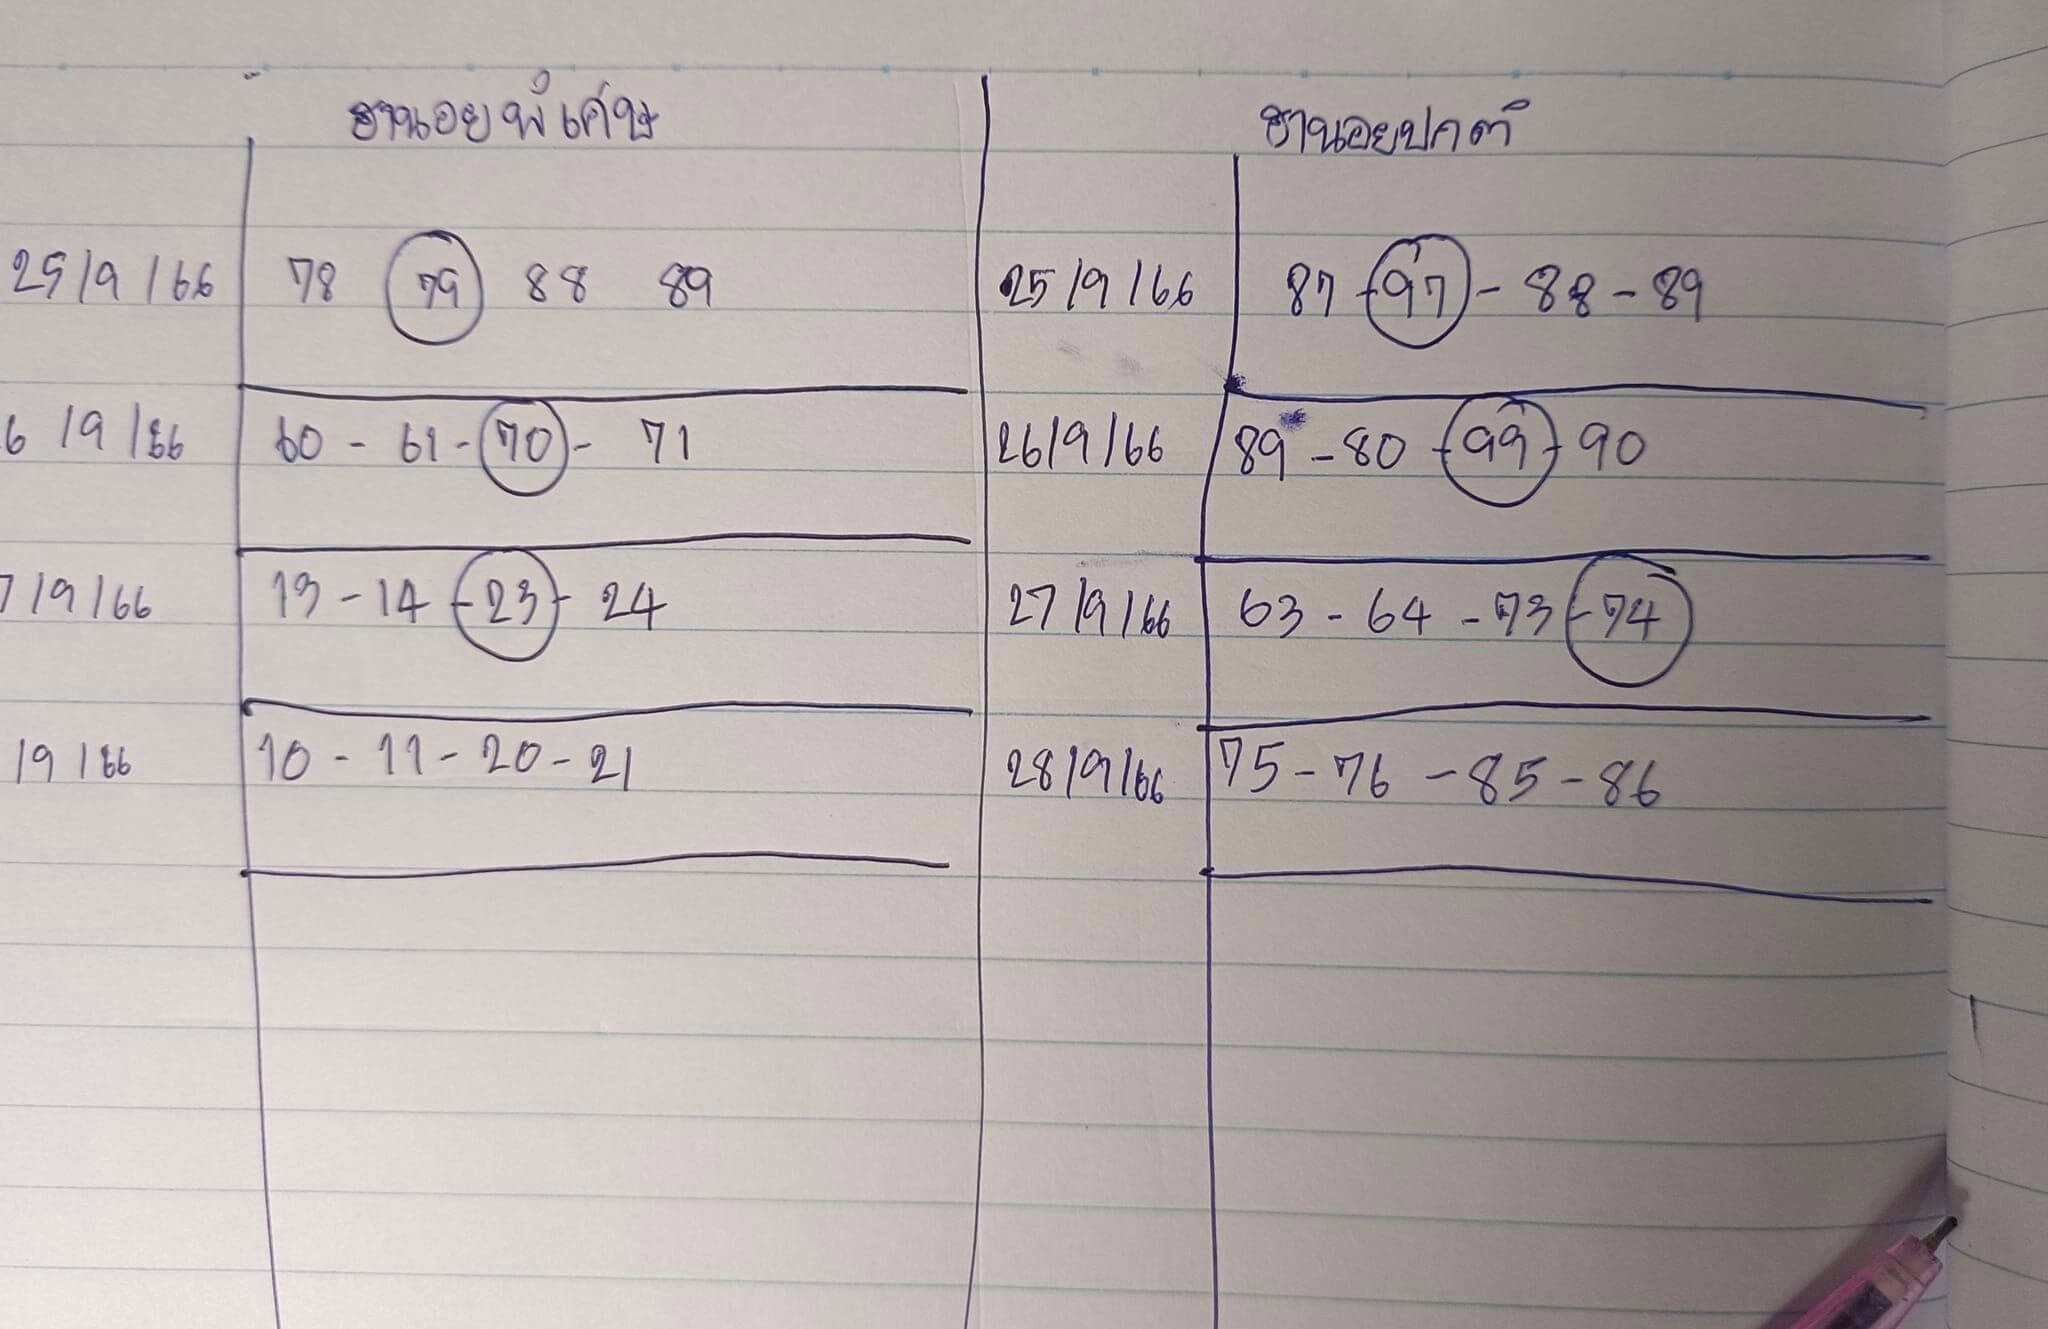 ฮานอยพิเศษ
25/9/66 78 79 88 89
6/9/66 60 - 61 - 70 - 71
7/9/66 13 - 14 - 23 - 24
/9/66 10 - 11 - 20 - 21
ฮานอยปกติ
25/9/66 87 - 97 - 88 - 89
26/9/66 89 - 80 - 99 - 90
27/9/66 63 - 64 - 73 - 74
28/9/66 75 - 76 - 85 - 86